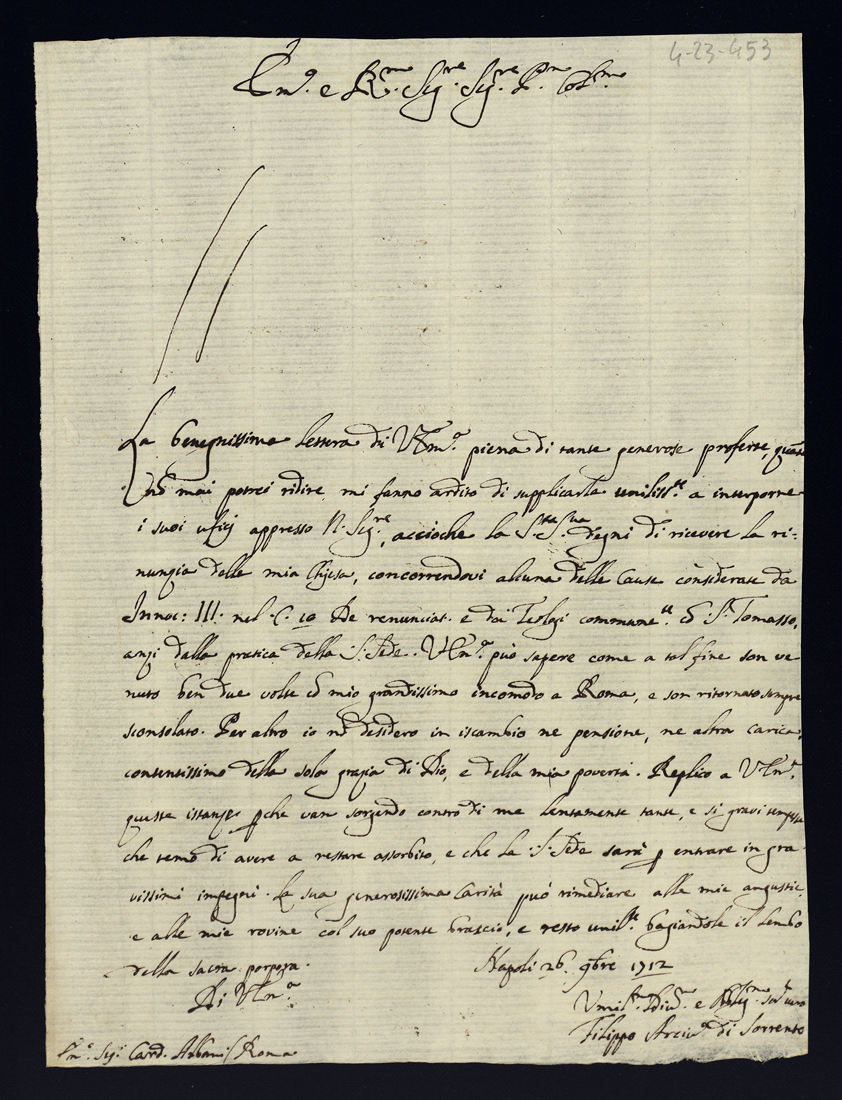 4-23-453
Em.o e R.mo Sig.re Sig.re P.ne Col.mo
La benegnissima lettera di V. Em.a piena di tante generose proferte, quãte
nõ mai potrei ridire, mi fanno ardito di supplicarla umiliss.te a interporre
i suoi uficj appresso N. Sig.re, accioche la S.ta Sua degni di ricevere la ri:
nunzia della mia Chiesa, concorrendovi alcuna delle Cause cõsiderate da
Innoc: III. nel C. 10 De renunciat. e dai Teologi commune.te cõ S. Tomasso,
anzi dalla pratica della S. Sede. V. Em.a può sapere come a tal fine son ve
nuto ben due volte cõ mio grandissimo incomodo a Roma, e son ritornato sempre
sconsolato. Per altro io nõ desidero in iscambio ne pensione, ne altra carica,
contentissimo della sola grazia di Dio, e della mia povertà. Replico a V. Em.a
queste istanze pche van sorgendo contro di me lentamente tante, e sì gravi tempeste
che temo di avere a restare assorbito, e che la S. Sede sarà p entrare in gra
vissimi impegni. La sua generosissima Carità può rimediare alle mie angustie,
e alle mie rovine col suo potente braccio, e resto umil.te bagiandole il lembo
della sacra porpora.
Napoli 26. 9bre 1712
Di V. Em.a
Umil.mo Div.mo e Oblig.mo Ser.e vero
Filippo Arciv.o di Sorrento
Em.o Sig. Card. Albani / Roma